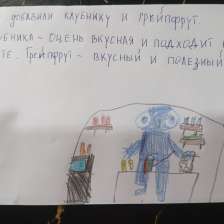 добавили клубнику и грейпфрут.
убника - очень вкусная и подходит
те. Грейпфрут - вкусный и полезный